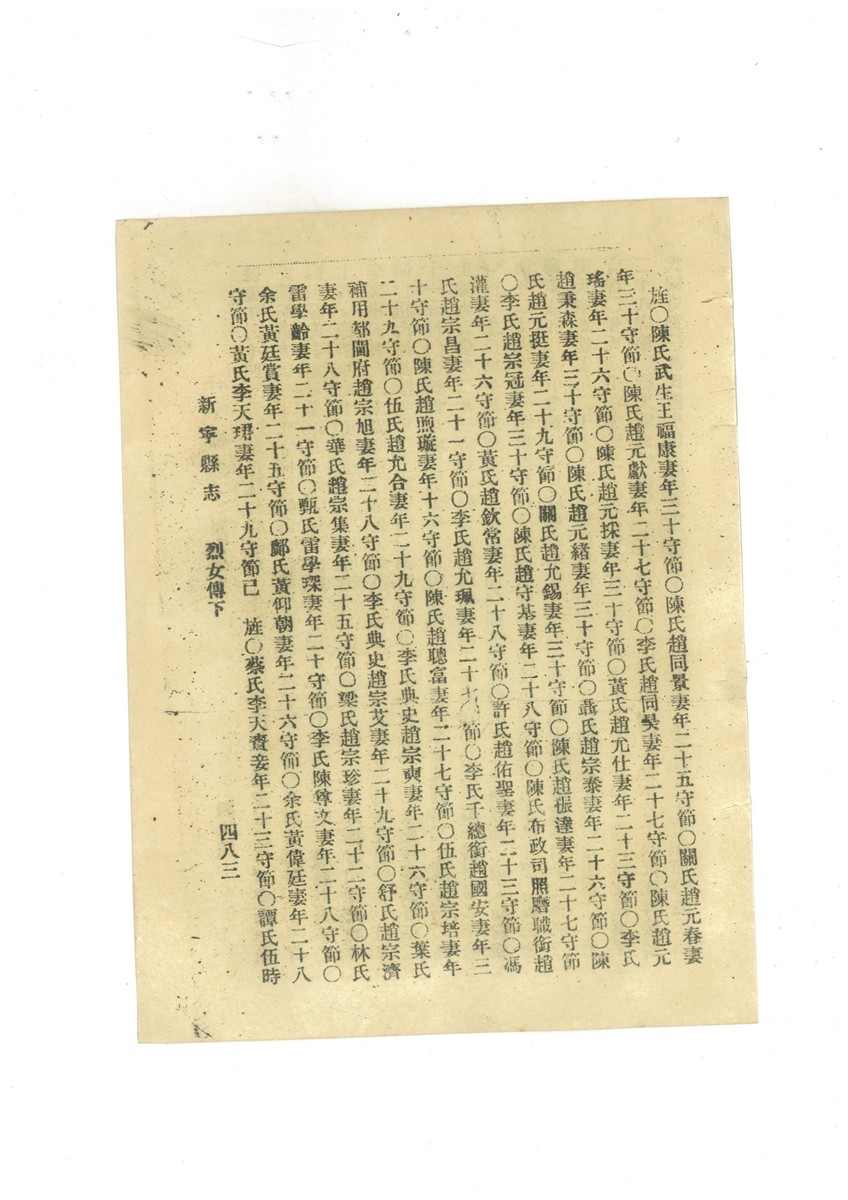 旌〇陳氏武生王福康妻年三十守節〇陳氏趙同景妻年二十五守節〇關氏趙元春妻
年三十守節〇陳氏趙元獻妻年二十七守節〇李氏趙同昊妻年二十七守節〇陳氏趙元
瑤妻年二十六守節〇陳氏趙元採妻年三十守節〇黃氏趙尤仕妻年二十三守節〇李氏
趙秉森妻年三十守節〇陳氏趙元緒妻年三十守節〇聶氏趙宗泰妻年二十六守節〇陳
氏趙元挺妻年二十九守節〇關氏趙允錫妻年三十守節〇陳氏趙振達妻年二十七守節
〇李氏趙宗冠妻年三十守節〇陳氏趙守基妻年二十八守節〇陳氏布政司照磨職銜趙
灌妻年二十六守節〇黃氏趙欽常妻年二十八守節〇許氏趙佑聖妻年二十三守節〇馮
氏趙宗昌妻年二十一守節〇李氏趙尤珮妻年二十節〇李氏千總銜趙國安妻年三
十守節〇陳氏趙煦璇妻年十六守節〇陳氏趙聰富妻年二十七守節〇伍氏趙宗培妻年
二十九守節〇伍氏趙允合妻年二十九守節〇李氏典史趙宗奭妻年二十六守節〇葉氏
補用都閫府趙宗旭妻年二十八守節〇李氏典史趙宗艾妻年二十九守節〇舒氏趙宗濟
妻年二十八守節〇華氏趙宗集妻年二十五守節〇梁氏趙宗珍妻年二十二守節〇林氏
雷學齡妻年二十一守節〇甄氏雷學琛妻年二十守節〇李氏陳尊文妻年二十八守節〇
余氏黃廷賞妻年二十五守節〇鄺氏黃仰朝妻年二十六守節〇余氏黃偉廷妻年二十八
守節〇黃氏李天珺妻年二十九守節已 旌〇蔡氏李天賚妾年二十三守節〇譚氏伍時
新寧縣志 烈女傳下 四八三